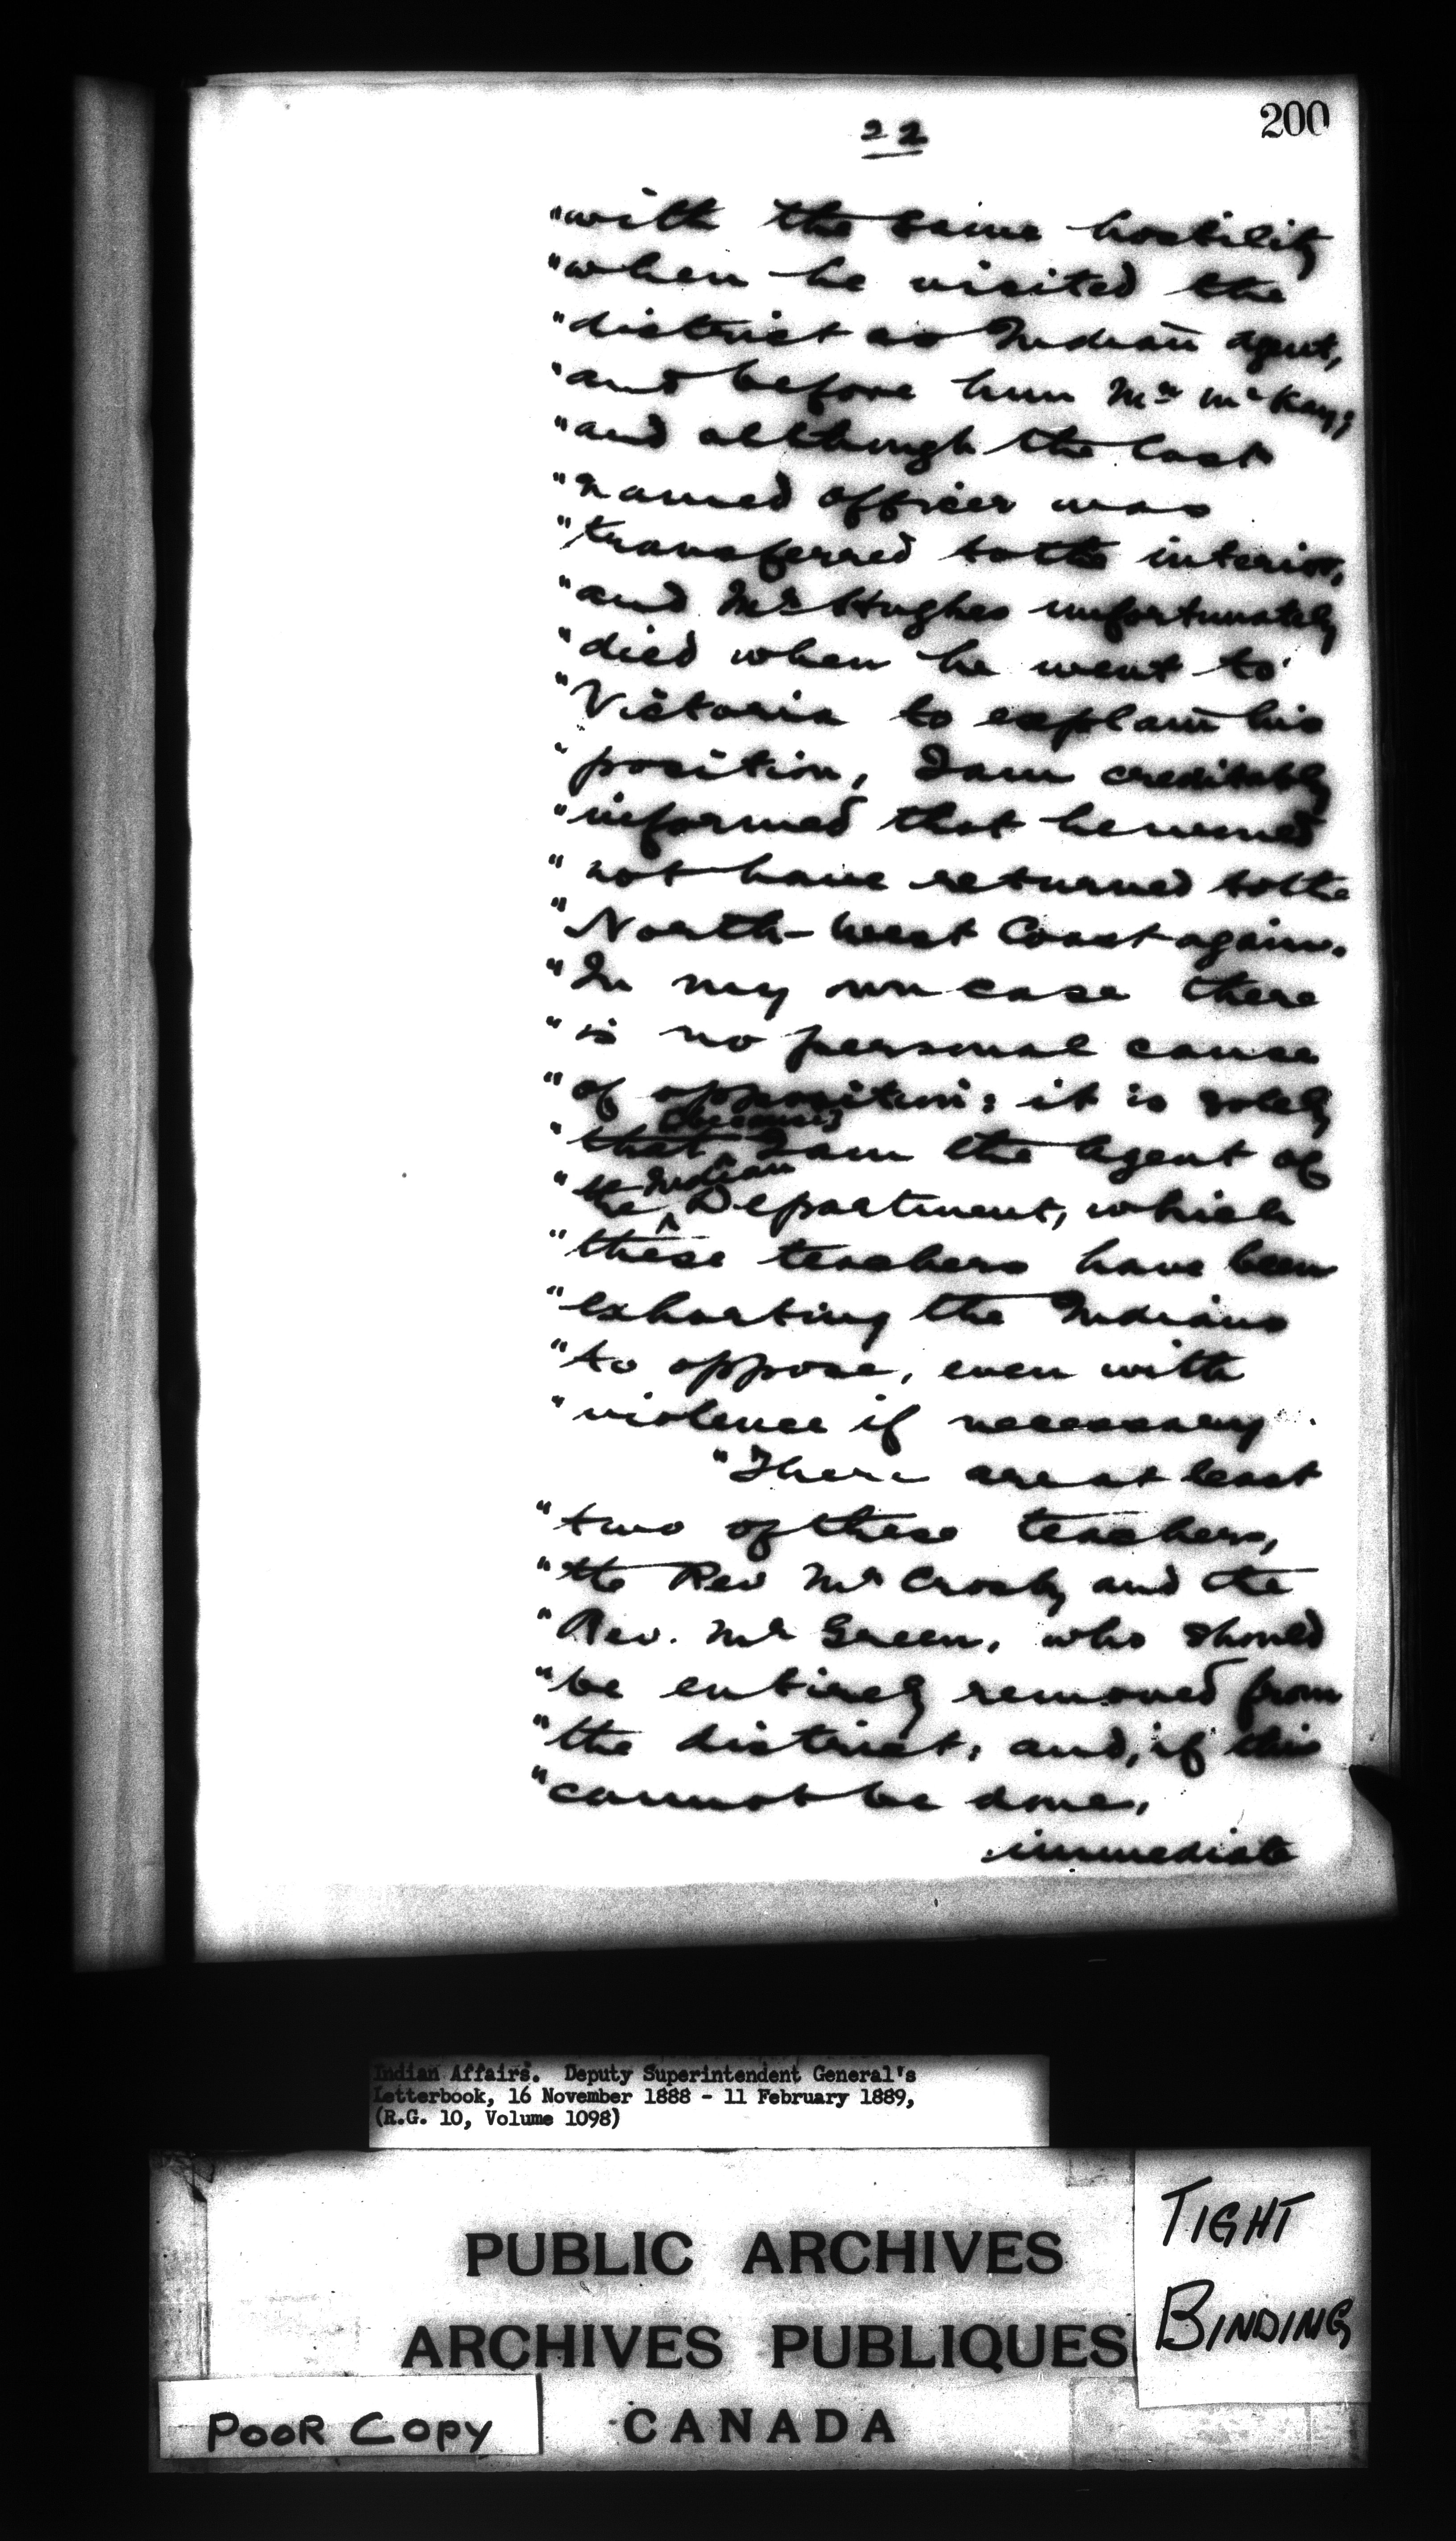 200
22
"with the same hostility
"when he visited the
"district as Indian agent,
"and before him Mr McKay;
"and although the last
"named officer was
"transferred to the interior,
"and Mr Hughes unfortunately
"died when he went to
"Victoria to explain his
"position, I am creditably
"informed that he would
"not have returned to the
"North-West Coast again.
"In my own case there
"is no personal cause
"of opposition: it is solely
"that I am the Agent of
"the Indian Department, which
"these teachers have been
"exhorting the Indians
"to oppose, even with
"violence if necessary
"There are at least
"two of these teachers,
"the Rev Mr Crosby and the
"Rev. Mr Green, who should
"be entirely removed from
"the district; and, if this
"cannot be done,
immediate
Indian Affairs. Deputy Superintendent General's
Letterbook, 16 November 1888 - 11 February 1889,
(R.G. 10, Volume 1098)
PUBLIC ARCHIVES
ARCHIVES PUBLIQUES
CANADA
TIGHT
BINDING
POOR COPY